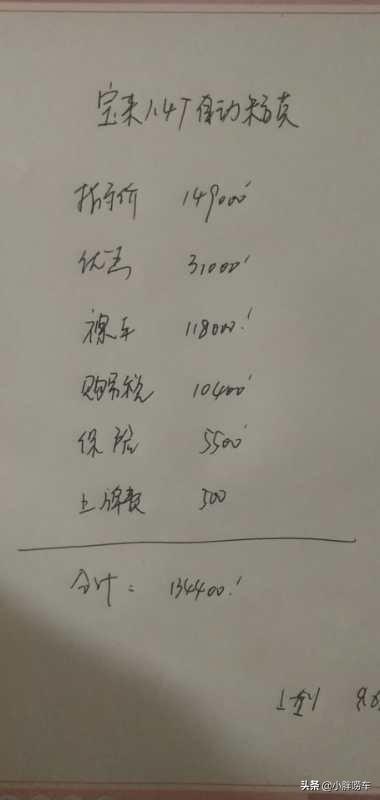 宝来1.4T自动精英
指导价 149000
优惠 31000
裸车 118000
购置税 10400
保险 5500
上牌费 500
合计: 134400
头条 @小胖唠车